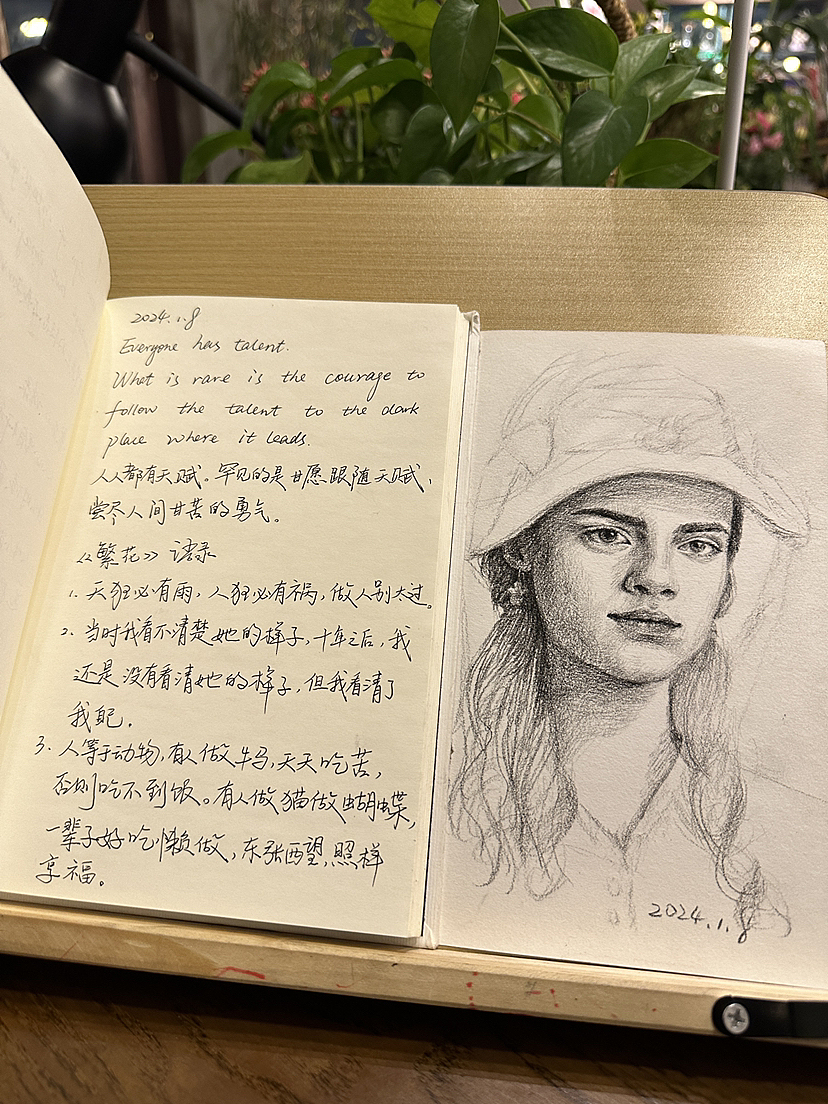 2024.1.8
Everyone has talent.
What is rare is the courage to
follow the talent to the dark
place where it leads.
人人都有天赋。罕见的是甘愿跟随天赋，
尝尽人间甘苦的勇气。
《繁花》语录
1. 天狂必有雨，人狂必有祸，做人别太过。
2. 当时我看不清楚她的样子，十年之后，我
还是没有看清她的样子，但我看清了
我自己。
3. 人等于动物，有人做牛马，天天吃苦，
否则吃不到饭。有人做猫做蝴蝶，
一辈子好吃懒做，东张西望，照样
享福。
2024.1.8